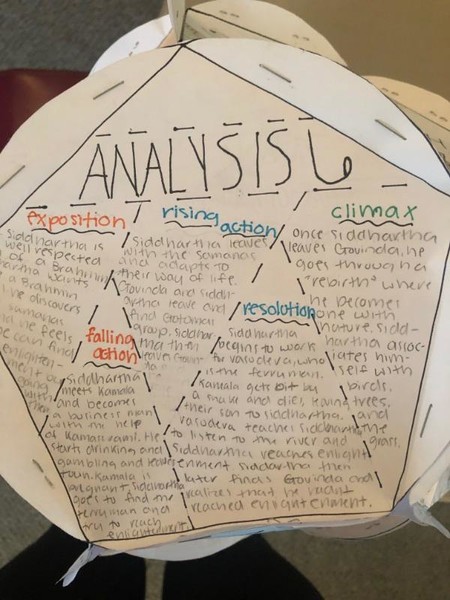 ANALYSIS
exposition
siddhartha is
well respected
of a Brahmin
wants
a Brahmin
he discovers
samanas
and he feels
he can find
enlighten-
rising action
siddhartha leaves
with the samanas
and adapts to
their way of life.
Govinda and siddh-
artha leave and
find Gotamas
group. siddhar
tha then
leaves
climax
once siddhartha
leaves Govinda, he
goes through a
"rebirth" where
he becomes
one with
nature. sidd-
hartha assoc-
iates him-
self with
birds,
trees,
and
the
grass.
falling
action
siddhartha
meets Kamala
and becomes
a business man
with the help
of Kamaswami. He
starts drinking and
gambling and
town. Kamala is
pregnant. Siddhartha
goes to find the
ferryman and
try to reach
enlightenment.
resolution
siddhartha
begins to work
for vasudeva, who
is the ferryman.
Kamala gets bit by
a snake and dies, leaving
their son to siddhartha.
vasudeva teaches siddhartha
to listen to the river and
siddhartha reaches enlight
enment. siddartha then
later finds Govinda and
realizes that he hadnt
reached enlightenment.